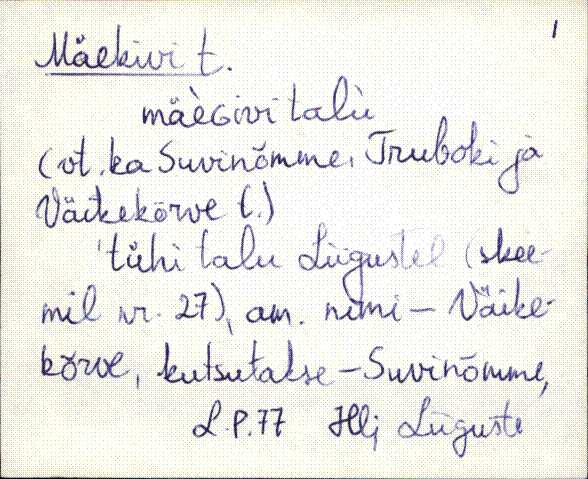 1
Mäekivi t.
mäèGivi talù
(vt. ka Suvinõmme, Truboki ja
Väikekõrve t.)
tühi talu Liigustel (skee-
mil nr. 27), am. nimi – Väike-
kõrve, kutsutakse – Suvinõmme,
L.P.77 Hlj Liiguste